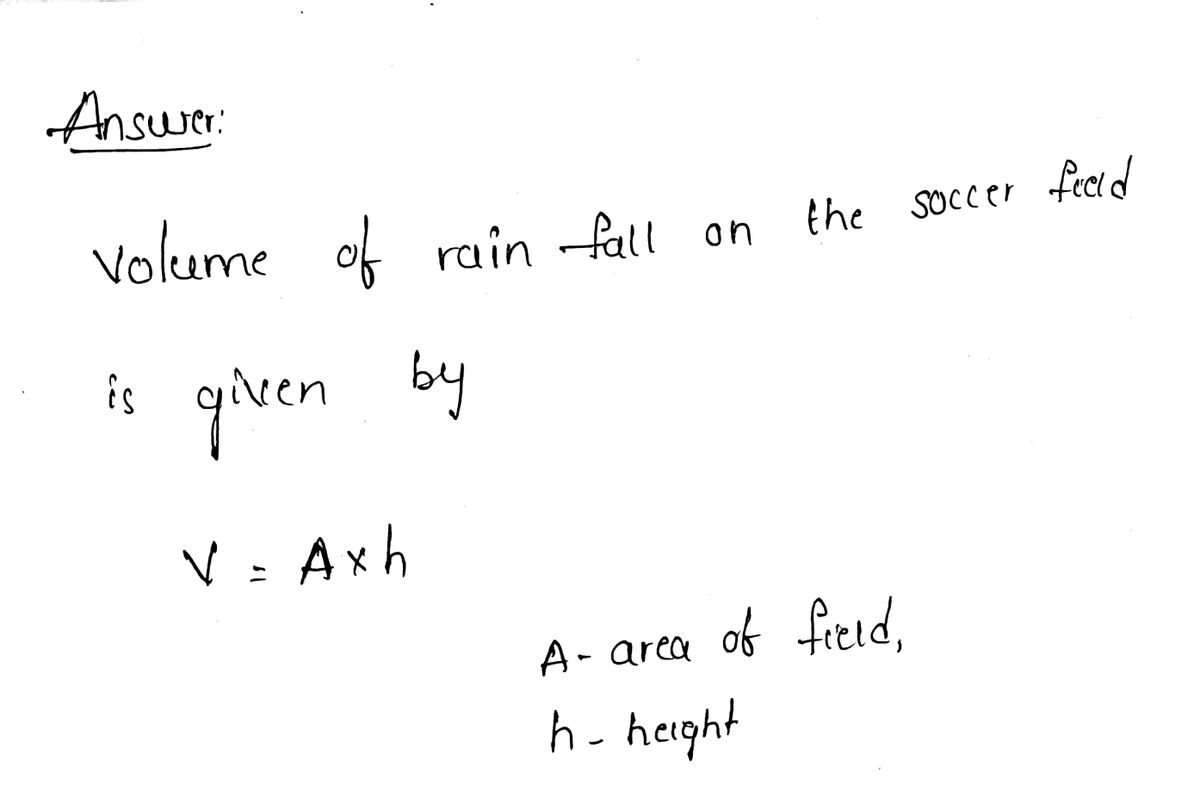 Answer:
Volume of rain fall on the soccer field
is given by
V = A x h
A - area of field,
h - height